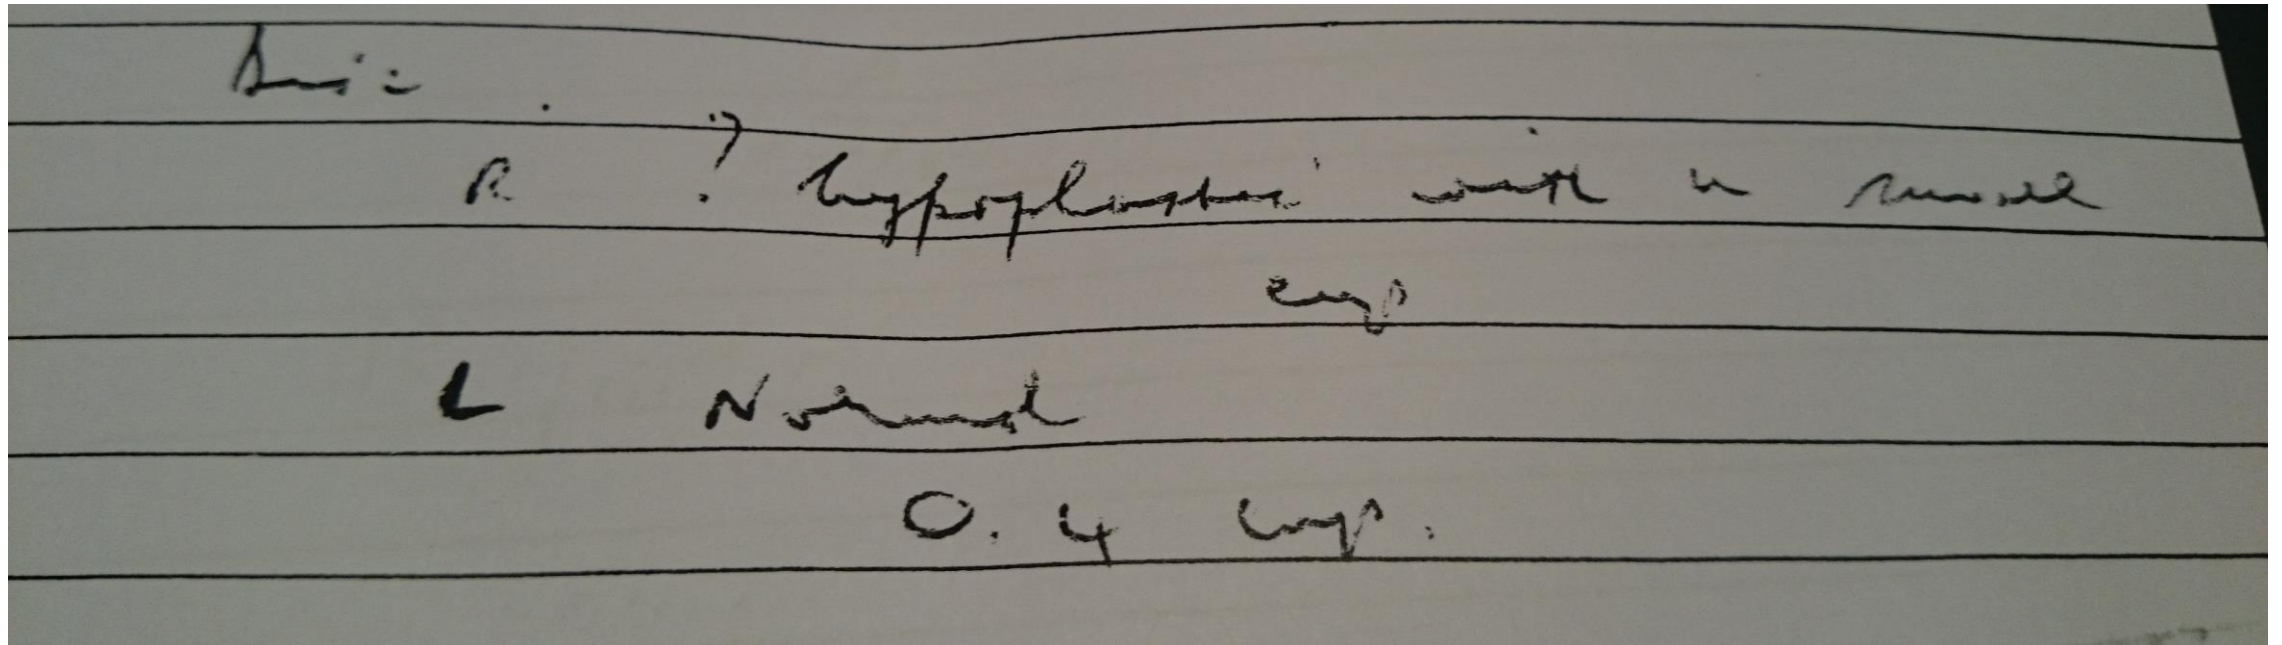 R ? hypoplastic with a small
cup
L Normal
0.4 cup.